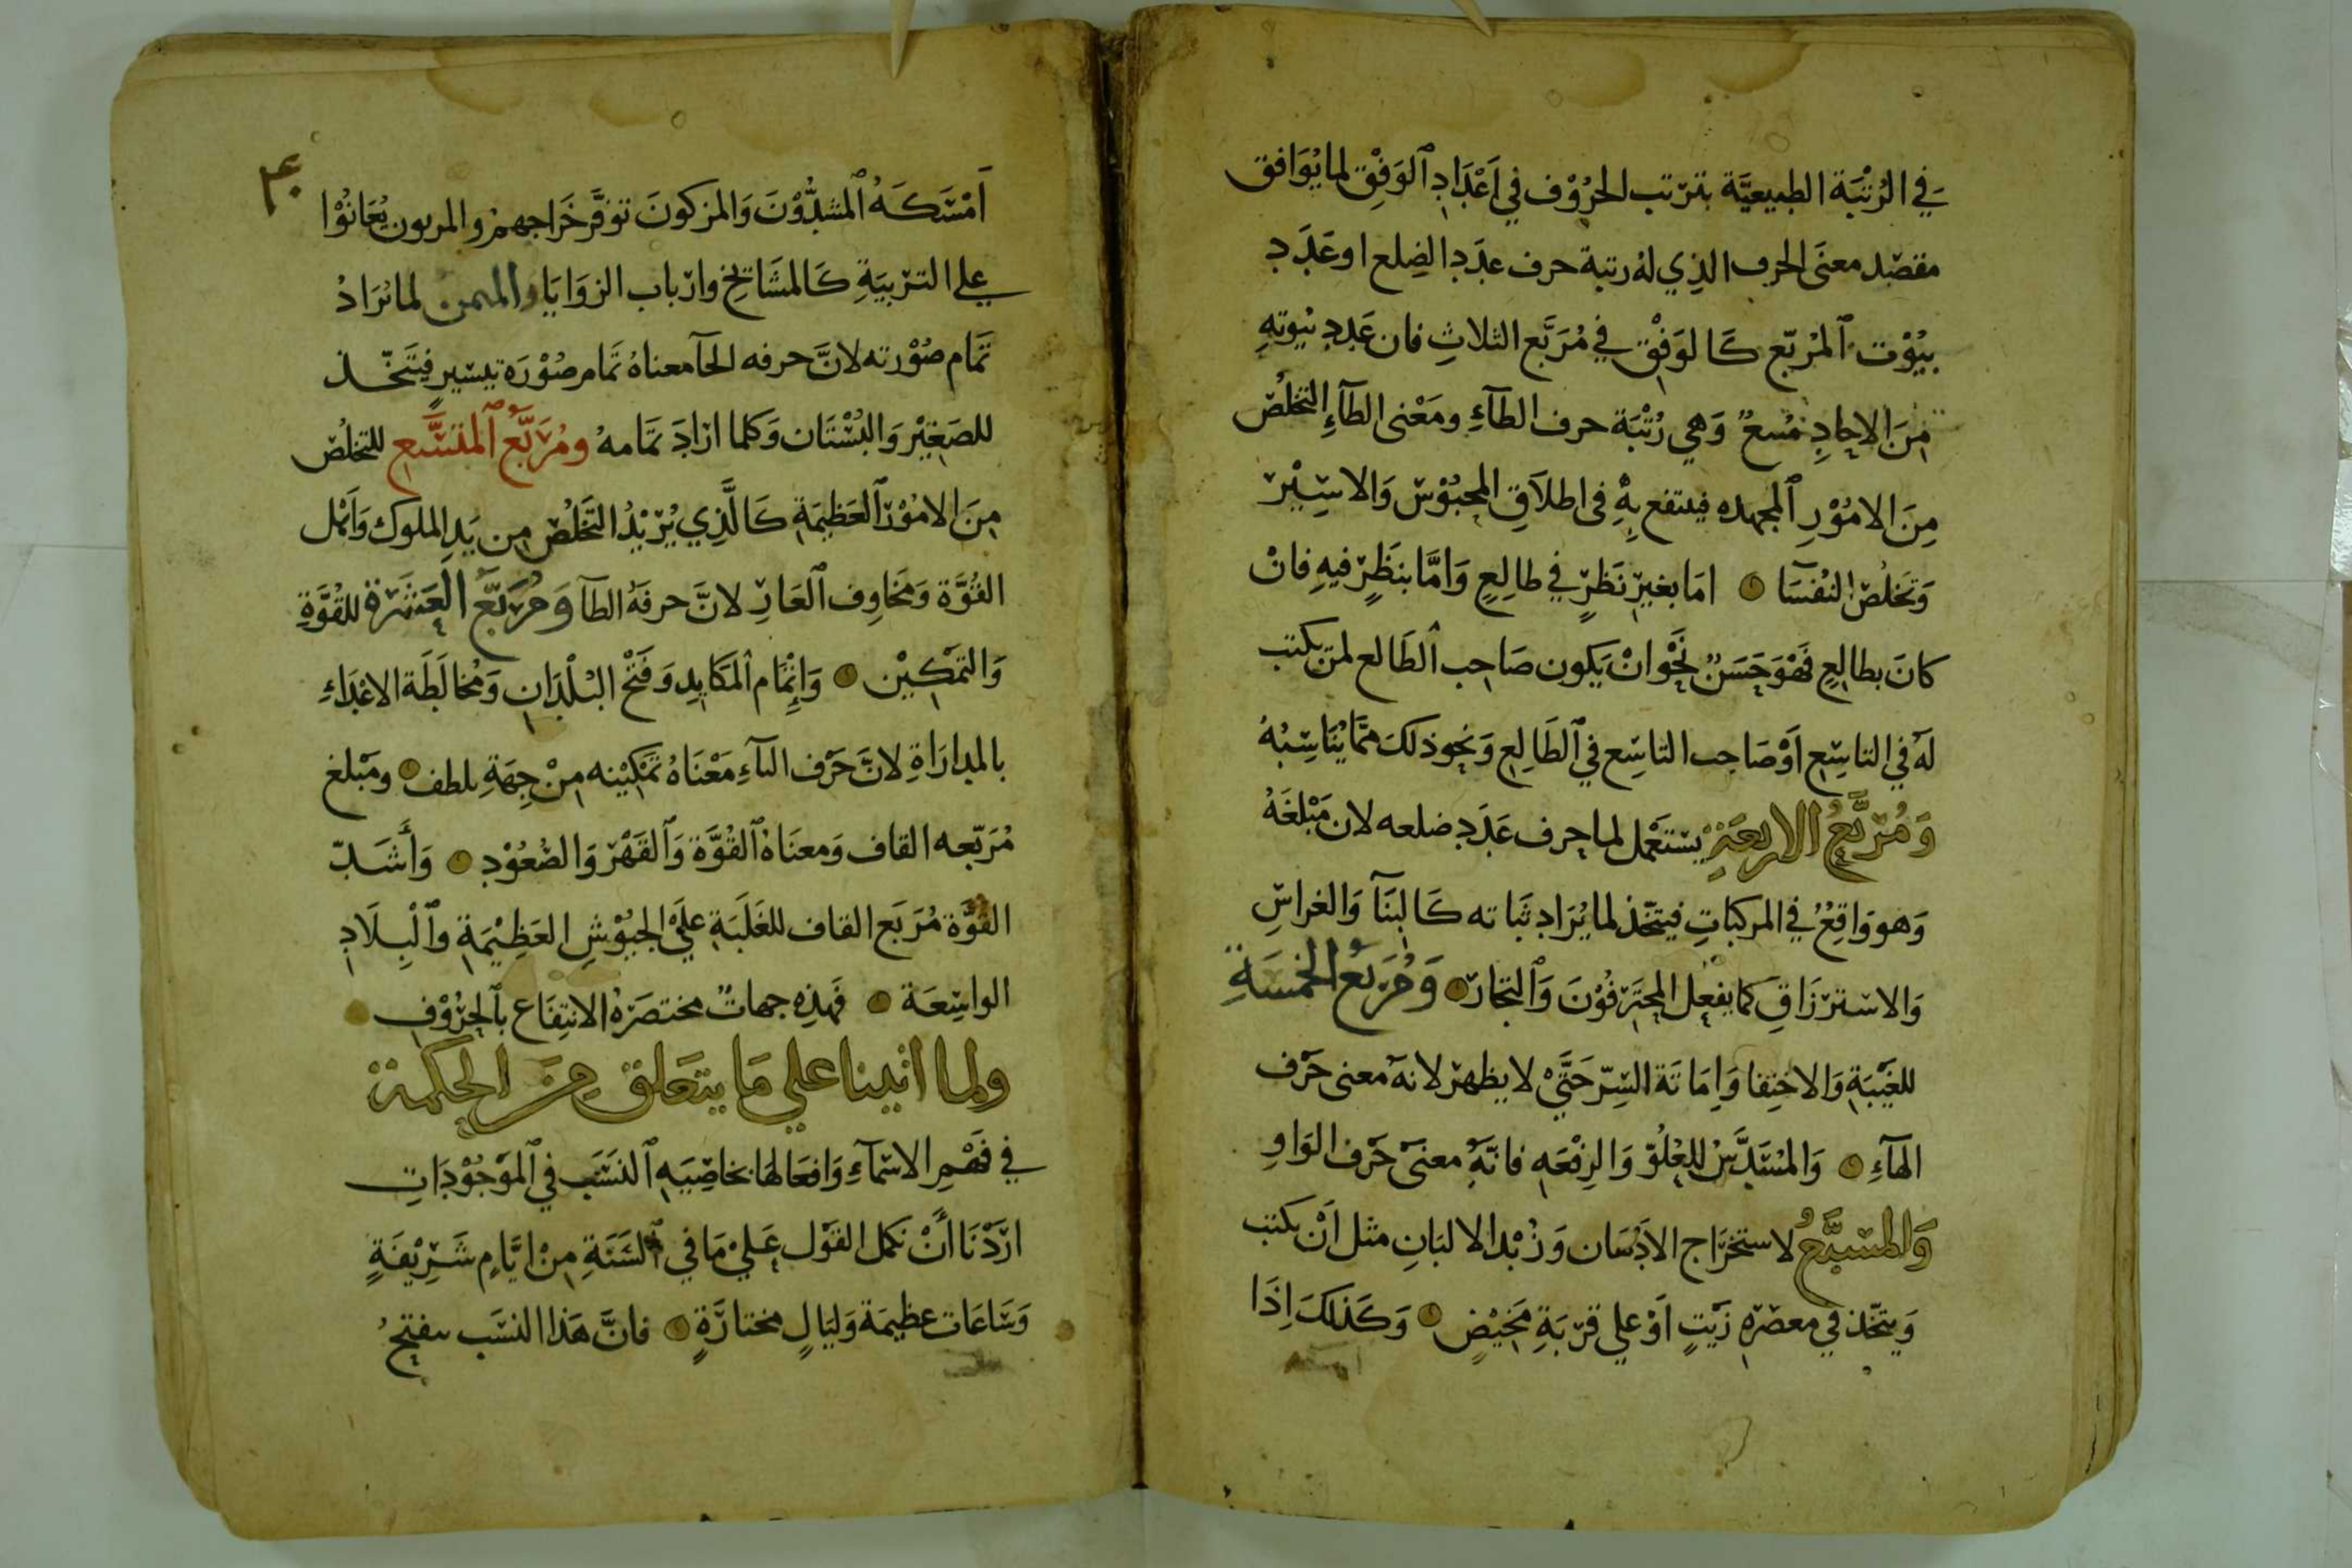 في الرُتْبَة الطبيعيَّة بترتب الحرُوْف في اَعْدَادِ الوَفْقِ لما يُوَافق
مقصد معنَى الحرف الذِي لهُ رتبة حرف عدَدِ الضِلع او عَدَدِ
بيُوْت المُربّع كَالوَفْقِ في مُرَبَّع الثلاثِ فان عَدد بُيوتهِ
مِنَ الاحادِ تسعٌ وَهي رُتْبَة حرف الطآءِ ومَعْنى الطآءِ التخلُص
مِنَ الامُوْرِ المجهده فينتفع بهِ في اطلاَقِ المحبُوْسْ وَالاسِيْر
وَتخلُص النُفسَا اما بغير نَظرٍ في طالِعٍ وَامَّا بنظَرٍ فيهِ فانْ
كانَ بطالعٍ فَهْوَ حَسَنٌ نَحْو انْ يَكون صَاحِب الطَالع لمنْ يكتب
لهُ في التاسِع اَوْ صَاحِب التاسِع في الطَالِعِ وَنحوذلكَ ممّا يُنَاسِبُهُ
وَمُربَّعُ الاربعَةِ يستعْمل لما حرف عَدَدِ ضلعه لان مَبْلغَهُ
وَهو وَاقِعٌ في المركباتِ فيتخذ لما يُرَاد ثبَاته كَالبنآ وَالغراسِ
وَالاسْترزَاقِ كما يفعل المحترفُوْنَ وَالتجارْ وَمُربّعُ الخمْسَةِ
للغَيْبَةِ وَالاختِفا وَاِمَاتَة السِّرّ حَتَّى لا يظهر لانهُ معنى حَرْف
الهآءِ وَالمُسَدَّسُ للعُلُوّ وَالرِفْعَه فانّهُ معنىَ حَرْف الوَاوِ
وَالمُسَبَّعُ لاستخرَاج الاَدْهَان وَزُبْد الالبَانِ مثل اَنْ يكتب
وَيتخّذ في معصرَه زَيْتٍ اَوْ على قرْبَةِ مَخِيْضٍ وَكَذلكَ اِذَا
امسكه
٤٠
اَمْسَكَهُ المشدُّوْنَ وَالمزكونَ توفّرَ خَرَاجهمْ والمربون يُعَانُوْا
على التربيَةِ كَالمشَائخِ وارْباب الزوَايَا والمثمن لما يُرَادُ
تمَام صُوْرته لانَّ حرفه الحآ معناهُ تَمَام صُوْرَة بيسيرٍ فيتَّخذ
للصَغِيْر وَالبُسْتَان وَكلما ارَادَ تمَامهُ ومُرَبَّعُ المُتسَّع للتخلُص
مِنَ الامُوْر العَظيمَةِ كَالَّذِي يُرِيْدُ التَّخلُص مِن يَدِ الملوك وَاَهْل
القُوَّة وَمَخَاوِف العَارِ لانَّ حرفَهُ الطآ وَمُربّعُ العَشَرَة للقُوَّةِ
وَالتمْكِيْن وَاِتْمَام المَكَايدِ وَفَتْح البُلْدَانِ وَمُخالَطَة الاعْدَاءِ
بالمدارَاةِ لانَّ حَرْف اليآءِ مَعْنَاهُ تمْكِيْنه مِنْ جِهَةِ بلطف ومَبْلغ
مُرَبّعه القاف وَمعنَاهُ القُوَّة وَالقَهْر وَالصُعُوْد وَأَشَدّ
القُوَّة مُرَبَع القاف للغَلَبَةِ عَلىْ الجيُوْشِ العَظِيْمَةِ وَالْبِلَادِ
الواسِعَة فَهذِهِ جهاتٌ مختصَرَةُ الانتِفَاع بالحرُوْفِ
ولما اتينا على مَا يتعَلق مِنَ الحكمة
في فَهْمِ الاسْمآءِ وَافعَالهَا بخاصِّيَهِ النسَب في المَوْجُوْدَاتِ
ارَدْنَا أَنْ نكمل القَوْل عَلىْ مَا في السَنَةِ مِنْ ايَّامٍ شَرِيْفَةٍ
وَسَاعَات عظيمَة وَليَالٍ مختارَةٍ فانَّ هَذا النسَب يفتحُ